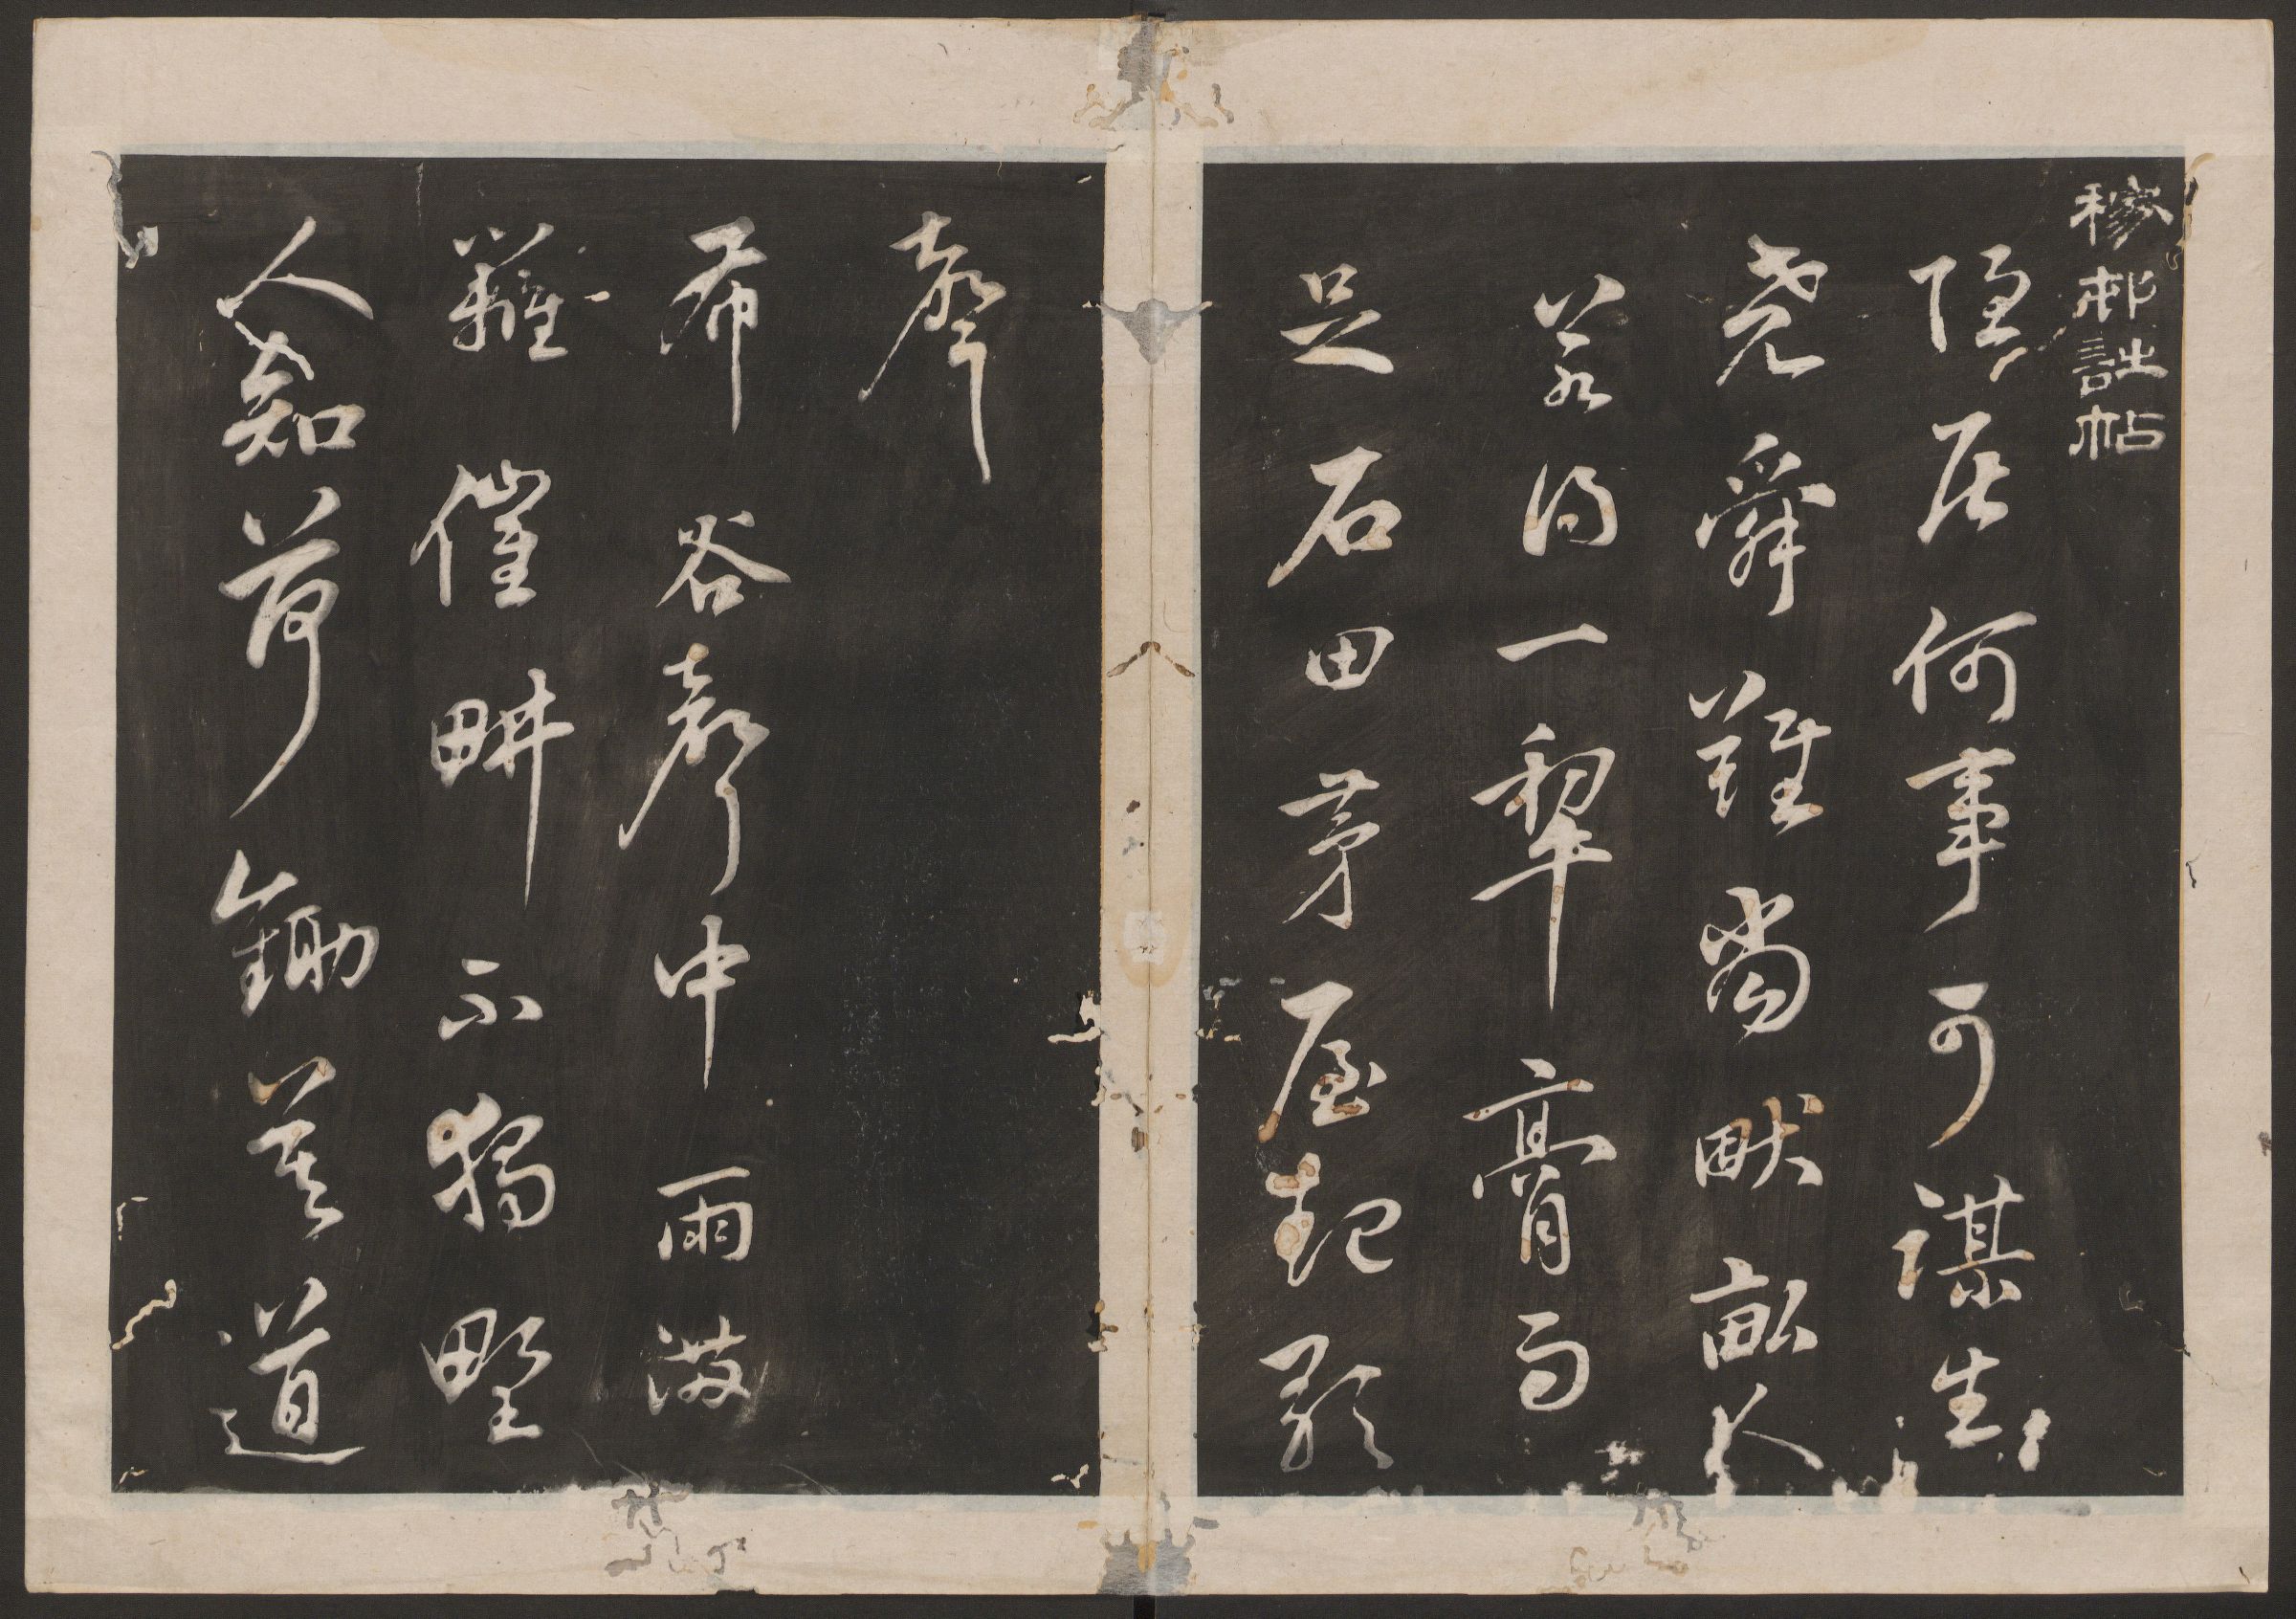 邨帖
隱居何事可謀生
堯舜雖畎畝人
若得一犂膏雨
足石田茅屋起歌
聲
布谷聲中雨滿
籬催畊不獨野
人知荷鋤莫道